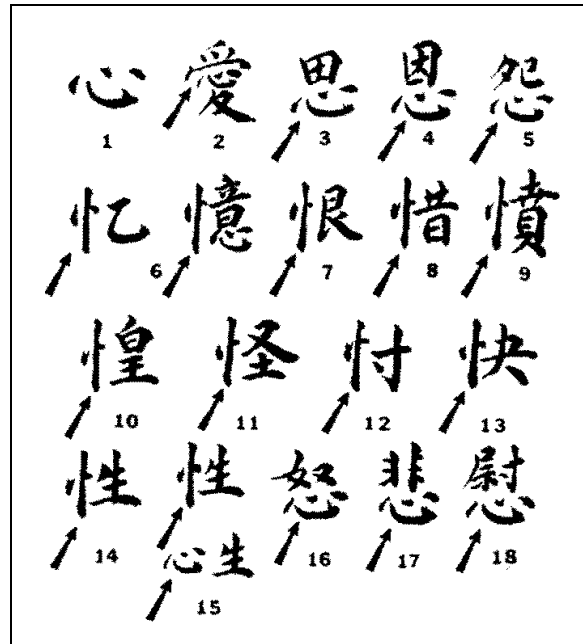 心 愛 思 恩 怨
1 2 3 4 5
忆 憶 恨 惜 憤
6 7 8 9
惶 怪 忖 快
10 11 12 13
性 性 怒 悲 慰
心 生
14 15 16 17 18